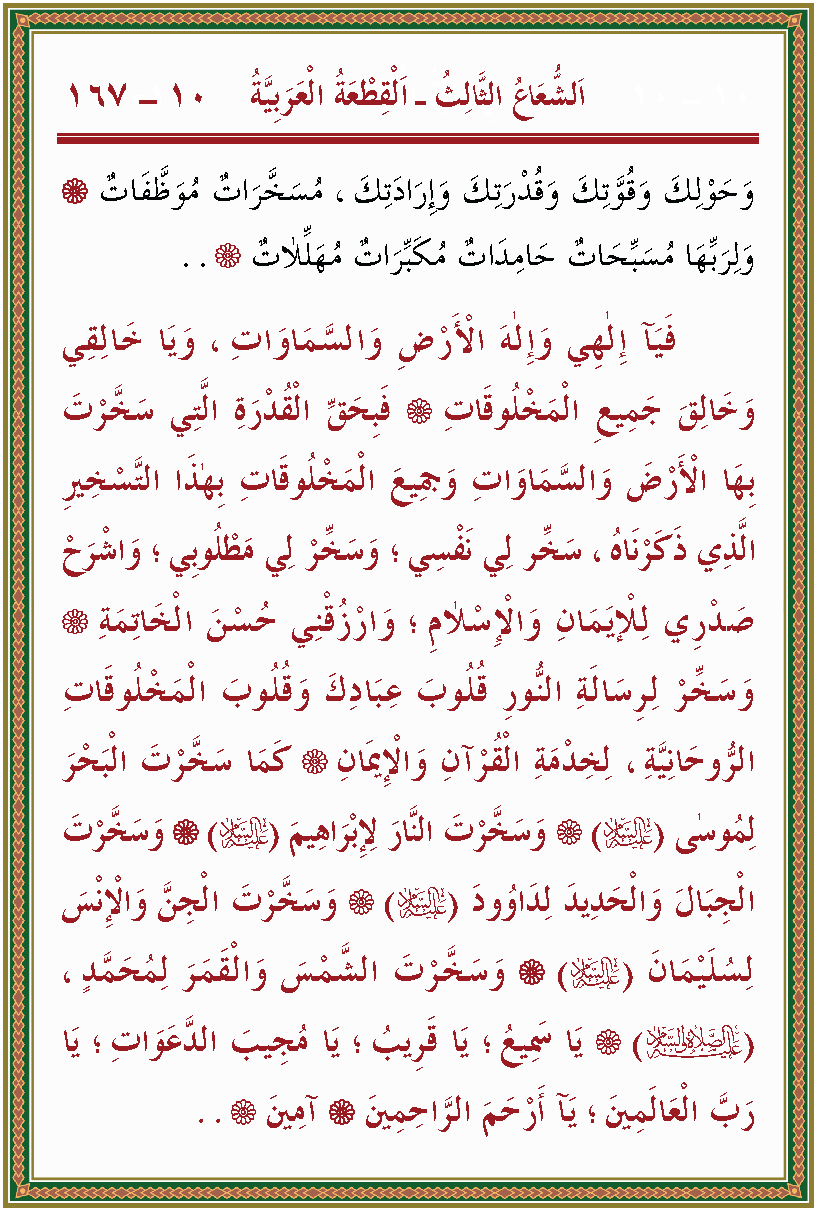 اَلشُّعَاعُ الثَّالِثُ ـ اَلْقِطْعَةُ الْعَرَبِيَّةُ ١٠ – ١٦٧
وَحَوْلِكَ وَقُوَّتِكَ وَقُدْرَتِكَ وَإِرَادَتِكَ ، مُسَخَّرَاتٌ مُوَظَّفَاتٌ ❁
وَلِرَبِّهَا مُسَبِّحَاتٌ حَامِدَاتٌ مُكَبِّرَاتٌ مُهَلِّلَاتٌ ❁ . .
فَيَآ إِلٰهِي وَإِلٰهَ الْأَرْضِ وَالسَّمَاوَاتِ ، وَيَا خَالِقِي
وَخَالِقَ جَمِيعِ الْمَخْلُوقَاتِ ❁ فَبِحَقِّ الْقُدْرَةِ الَّتِي سَخَّرْتَ
بِهَا الْأَرْضَ وَالسَّمَاوَاتِ وَجَمِيعَ الْمَخْلُوقَاتِ بِهٰذَا التَّسْخِيرِ
الَّذِي ذَكَرْنَاهُ ، سَخِّر لِي نَفْسِي ؛ وَسَخِّرْ لِي مَطْلُوبِي ؛ وَاشْرَحْ
صَدْرِي لِلْإِيَمَانِ وَالْإِسْلَامِ ؛ وَارْزُقْنِي حُسْنَ الْخَاتِمَةِ ❁
وَسَخِّرْ لِرِسَالَةِ النُّورِ قُلُوبَ عِبَادِكَ وَقُلُوبَ الْمَخْلُوقَاتِ
الرُّوحَانِيَّةِ ، لِخِدْمَةِ الْقُرْآنِ وَالْإِيمَانِ ❁ كَمَا سَخَّرْتَ الْبَحْرَ
لِمُوسٰى (عليه السلام) ❁ وَسَخَّرْتَ النَّارَ لِإِبْرَاهِيمَ (عليه السلام) ❁ وَسَخَّرْتَ
الْجِبَالَ وَالْحَدِيدَ لِدَاوُودَ (عليه السلام) ❁ وَسَخَّرْتَ الْجِنَّ وَالْإِنْسَ
لِسُلَيْمَانَ (عليه السلام) ❁ وَسَخَّرْتَ الشَّمْسَ وَالْقَمَرَ لِمُحَمَّدٍ ،
(عليه الصلاة والسلام) ❁ يَا سَمِيعُ ؛ يَا قَرِيبُ ؛ يَا مُجِيبَ الدَّعَوَاتِ ؛ يَا
رَبَّ الْعَالَمِينَ ؛ يَآ أَرْحَمَ الرَّاحِمِينَ ❁ آمِينَ ❁ . .